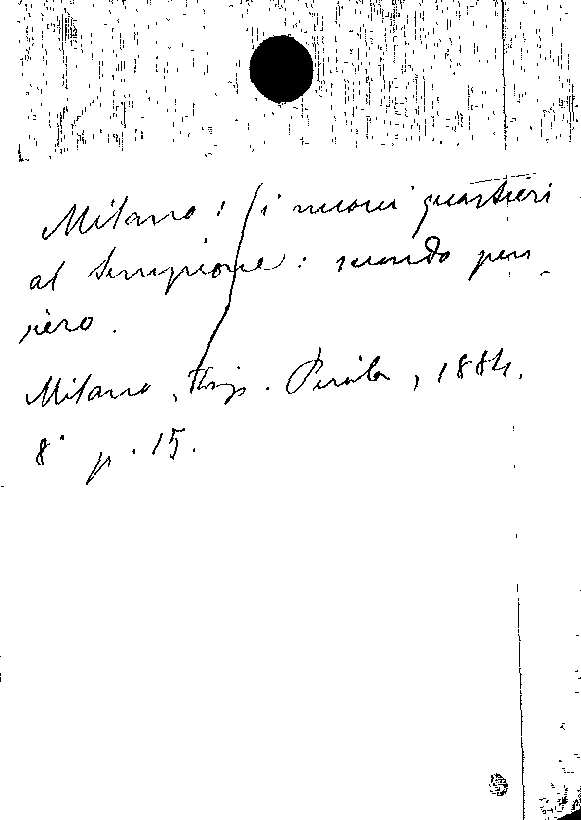 Milano: i nuovi quartieri
al Sempione: secondo pen
siero.
Milano, Tip. Pirola, 1884.
8° p. 15.